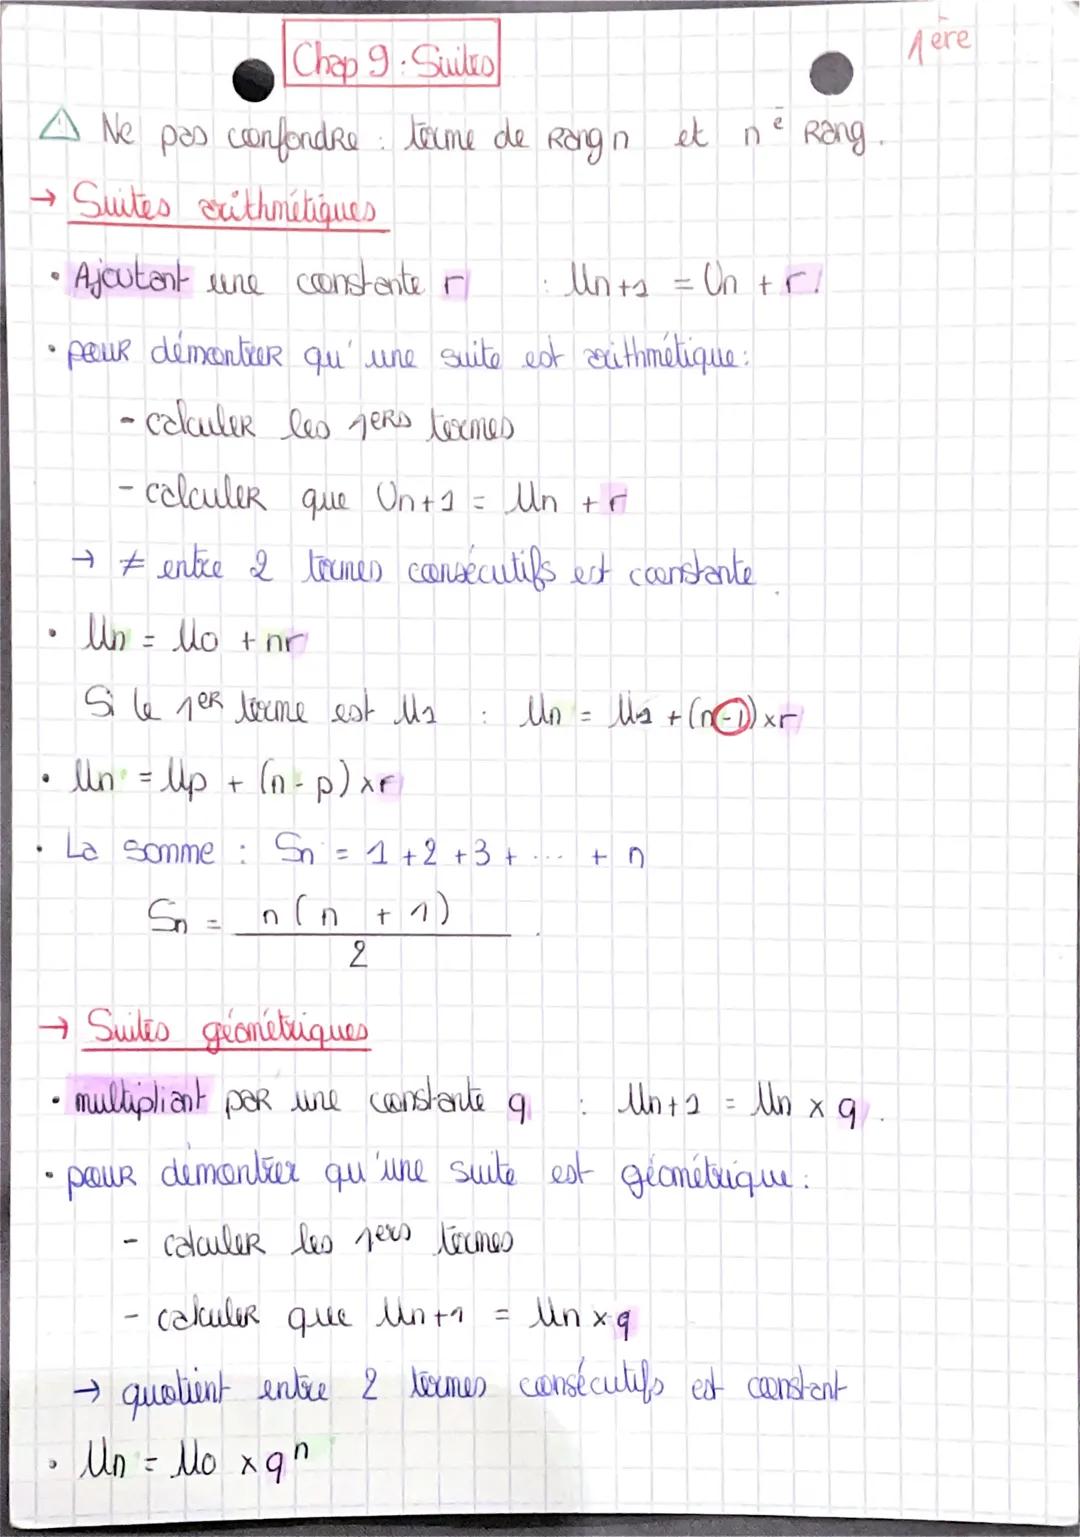 Chap 9 : Suites
1ère
⚠ Ne pas confondre : terme de Rang n et nᵉ Rang.
→ Suites arithmétiques
• Ajoutant une constante r : Un+1 = Un + r.
• pour démontrer qu'une suite est arithmétique :
- calculer les 1ers termes
- calculer que Un+1 = Un + r
→ ≠ entre 2 termes consécutifs est constante.
• Un = U0 + nr
Si le 1er terme est U1 : Un = U1 + (n-1) × r
• Un = Up + (n - p) × r
• La somme : Sn = 1 + 2 + 3 + ... + n
Sn = n(n + 1) / 2.
→ Suites géométriques
• multipliant par une constante q : Un+1 = Un × q.
• pour démontrer qu'une suite est géométrique :
- calculer les 1ers termes
- calculer que Un+1 = Un × q
→ quotient entre 2 termes consécutifs est constant
• Un = U0 × qⁿ